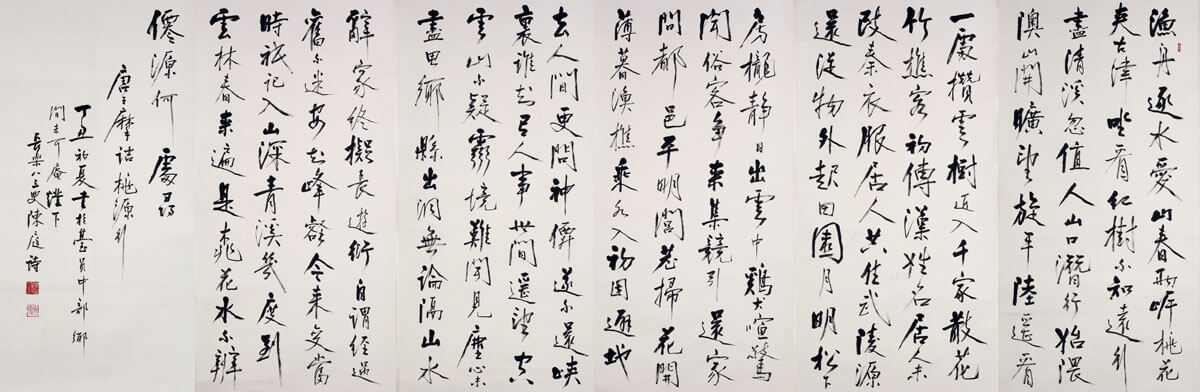 漁舟逐水愛山春兩岸桃花
夾古津坐看紅樹不知遠行
盡清溪忽值人山口潛行始隈
隩山開曠望旋平陸遙看
一處攢雲樹近入千家散花
竹樵客初傳漢姓名居人未
改秦衣服居人共住武陵源
還從物外起田園月明松下
房櫳靜日出雲中鷄犬喧驚
聞俗客爭來集競引還家
問都邑平明閭巷掃花開
薄暮漁樵乘水入初因避地
去人間更問神僊遂不還峽
裏誰知有人事世間遙望空
雲山不疑靈境難聞見塵心未
盡思鄉縣出洞無論隔山水
辭家終擬長遊衍自謂經過
舊不迷安知峰壑今來變當
時祇記入山深青溪幾度到
雲林春來遍是桃花水不辨
僊源何處尋
唐王摩詰桃源行
丁丑初夏書於臺員中部鄉
間 可庵燈下
長樂八三叟陳庭詩